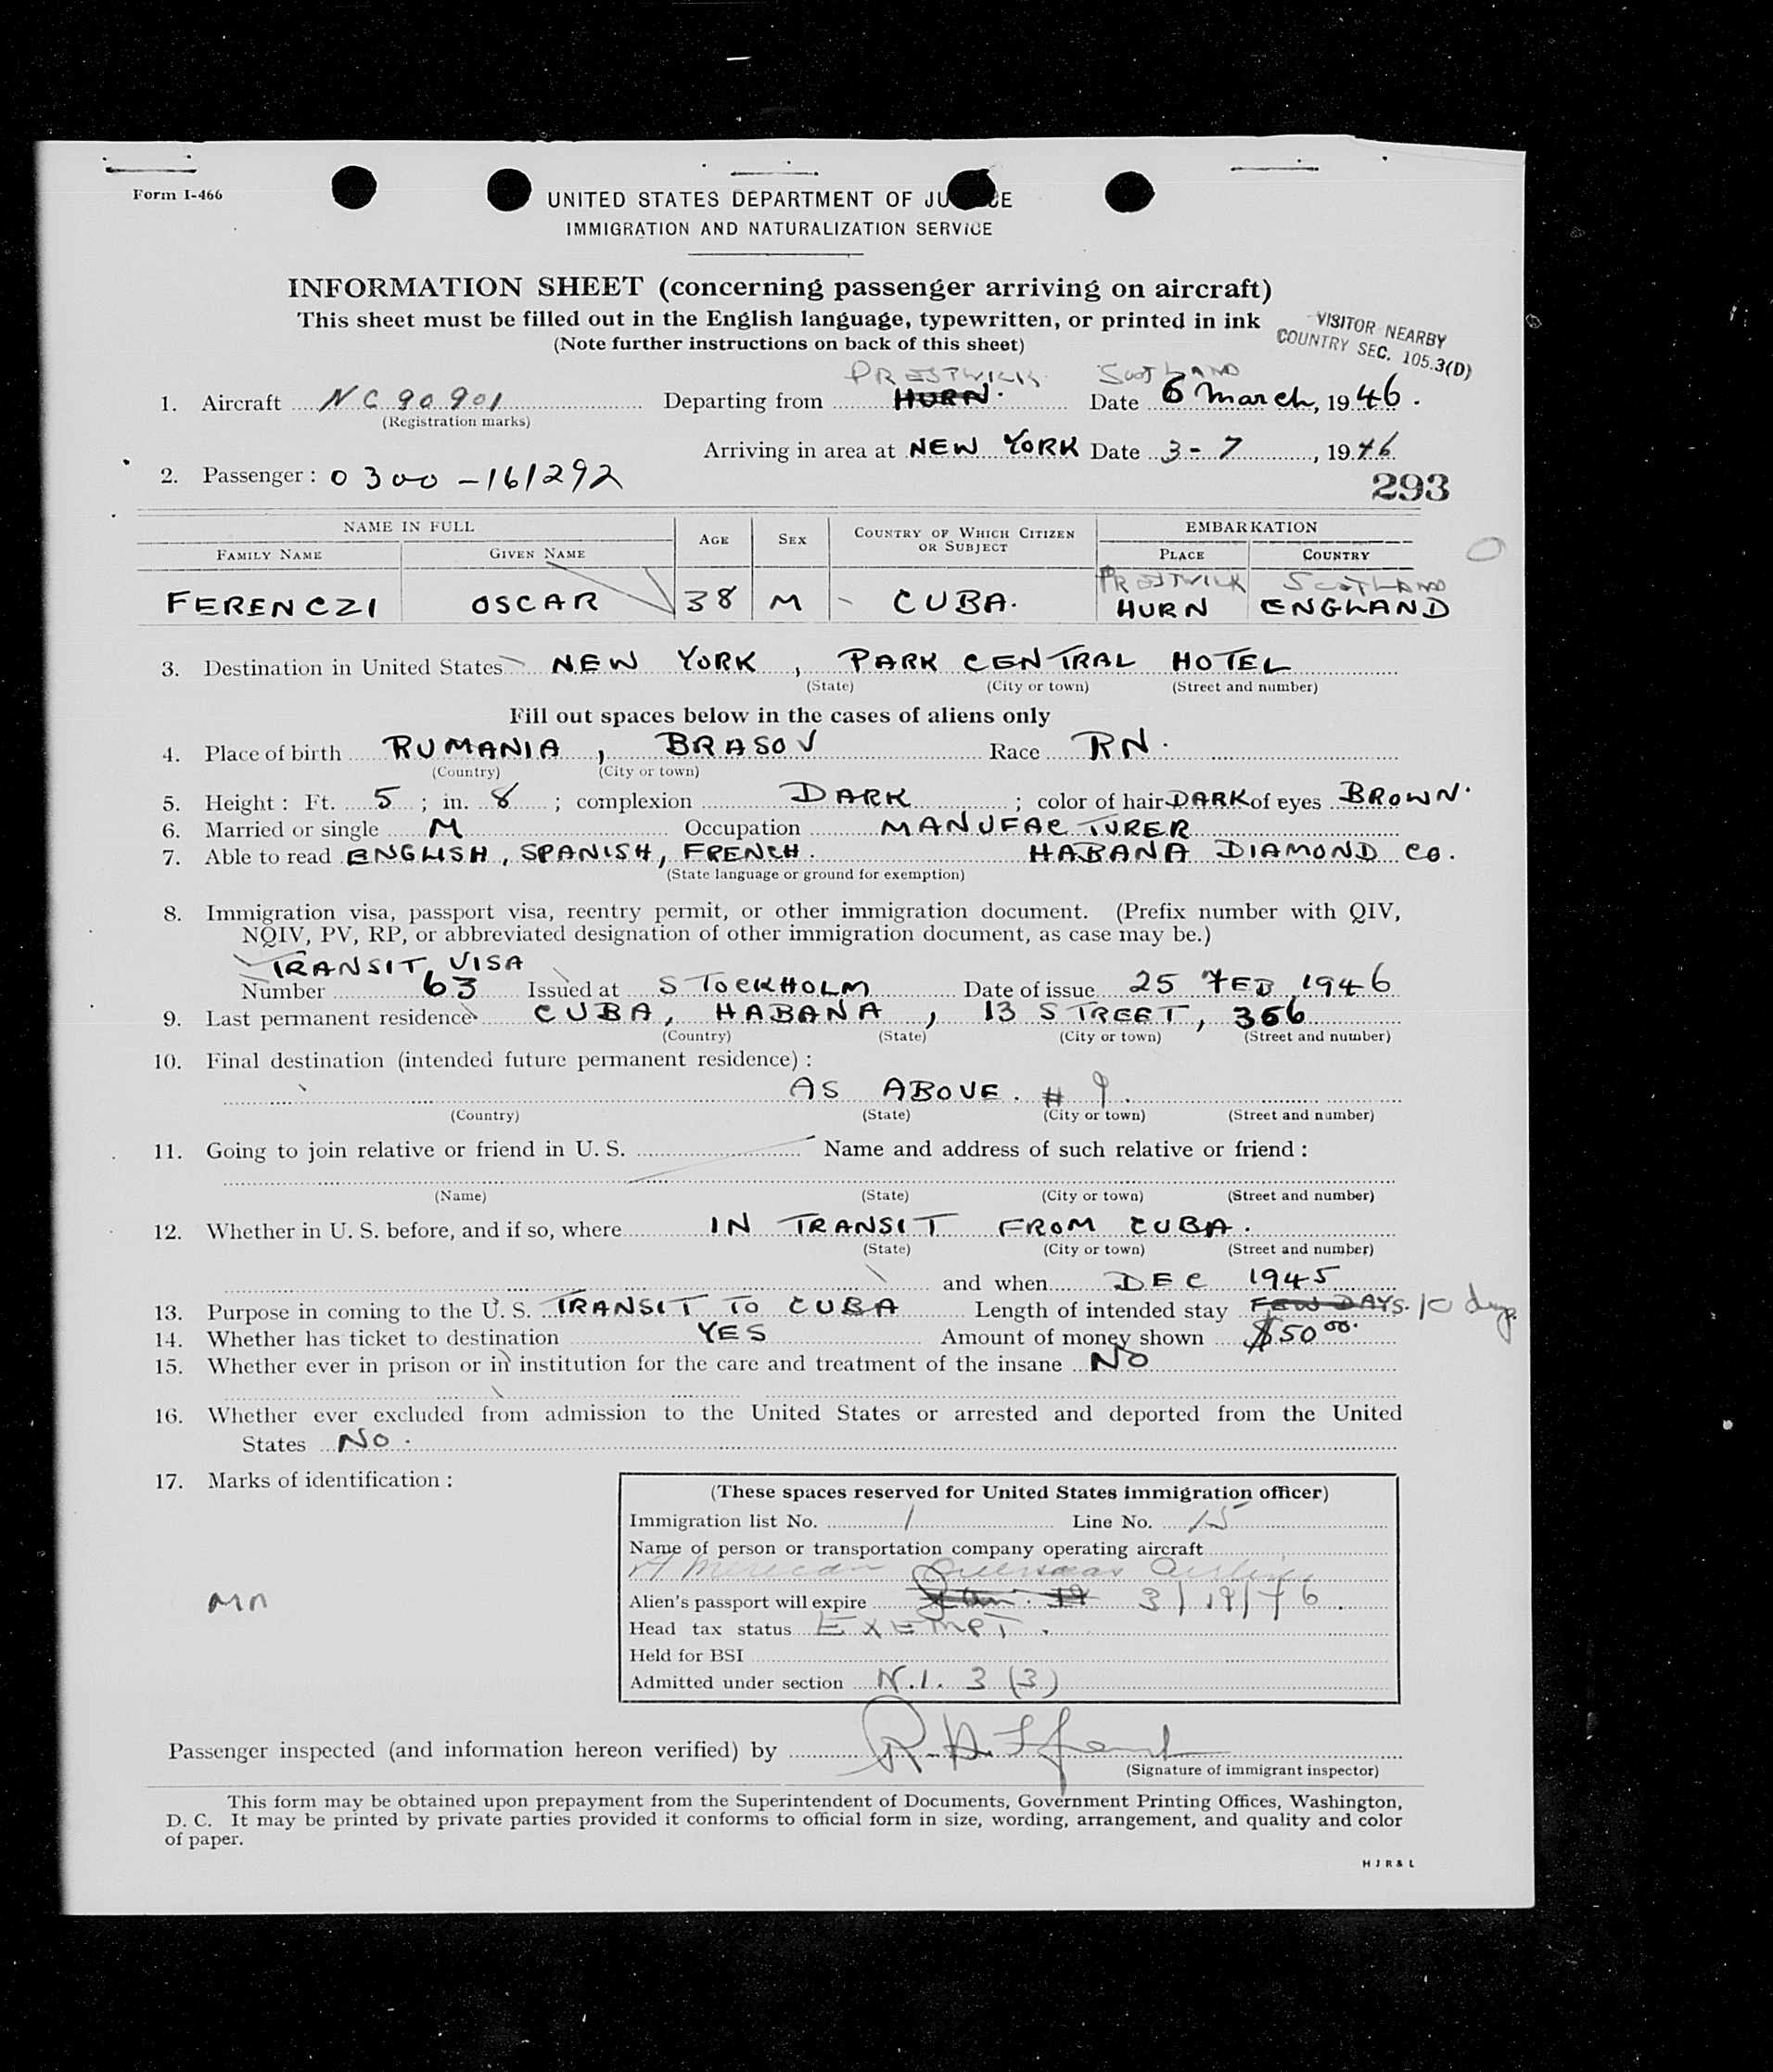 Form I-466
UNITED STATES DEPARTMENT OF JU CE
IMMIGRATION AND NATURALIZATION SERVICE
INFORMATION SHEET (concerning passenger arriving on aircraft)
This sheet must be filled out in the English language, typewritten, or printed in ink
(Note further instructions on back of this sheet)
VISITOR NEARBY
COUNTRY SEC. 105.3(D)
PRESTWICK SCOTLAND
1. Aircraft NC90901 Departing from HURN. Date 6 March, 1946.
(Registration marks)
Arriving in area at NEW YORK Date 3-7, 1946
2. Passenger: 0300-161292
293
NAME IN FULL AGE SEX COUNTRY OF WHICH CITIZEN OR SUBJECT EMBARKATION
FAMILY NAME GIVEN NAME PLACE COUNTRY
PRESTWICK SCOTLAND
FERENCZI OSCAR 38 M - CUBA. HURN ENGLAND
3. Destination in United States NEW YORK, PARK CENTRAL HOTEL
(State) (City or town) (Street and number)
Fill out spaces below in the cases of aliens only
4. Place of birth RUMANIA, BRASOV Race RN.
(Country) (City or town)
5. Height: Ft. 5; in. 8; complexion DARK; color of hair DARK of eyes BROWN.
6. Married or single M Occupation MANUFACTURER
7. Able to read ENGLISH, SPANISH, FRENCH. HABANA DIAMOND Co.
(State language or ground for exemption)
8. Immigration visa, passport visa, reentry permit, or other immigration document. (Prefix number with QIV,
NQIV, PV, RP, or abbreviated designation of other immigration document, as case may be.)
TRANSIT VISA
Number 63 Issued at STOCKHOLM Date of issue 25 FEB 1946
9. Last permanent residence CUBA, HABANA, 13 STREET, 356
(Country) (State) (City or town) (Street and number)
10. Final destination (intended future permanent residence):
AS ABOVE. # 9.
(Country) (State) (City or town) (Street and number)
11. Going to join relative or friend in U. S. Name and address of such relative or friend:
(Name) (State) (City or town) (Street and number)
12. Whether in U. S. before, and if so, where IN TRANSIT FROM CUBA.
(State) (City or town) (Street and number)
and when DEC 1945
13. Purpose in coming to the U. S. TRANSIT TO CUBA Length of intended stay FEW DAYS. 10 days
14. Whether has ticket to destination YES Amount of money shown $50 00.
15. Whether ever in prison or in institution for the care and treatment of the insane NO
16. Whether ever excluded from admission to the United States or arrested and deported from the United
States NO.
17. Marks of identification:
(These spaces reserved for United States immigration officer)
Immigration list No. 1 Line No. 15
Name of person or transportation company operating aircraft
American Overseas Airlines
Alien's passport will expire 3/19/46.
Head tax status EXEMPT.
Held for BSI
Admitted under section N.I. 3 (3)
Passenger inspected (and information hereon verified) by
(Signature of immigrant inspector)
This form may be obtained upon prepayment from the Superintendent of Documents, Government Printing Offices, Washington,
D. C. It may be printed by private parties provided it conforms to official form in size, wording, arrangement, and quality and color
of paper.
HJR&L